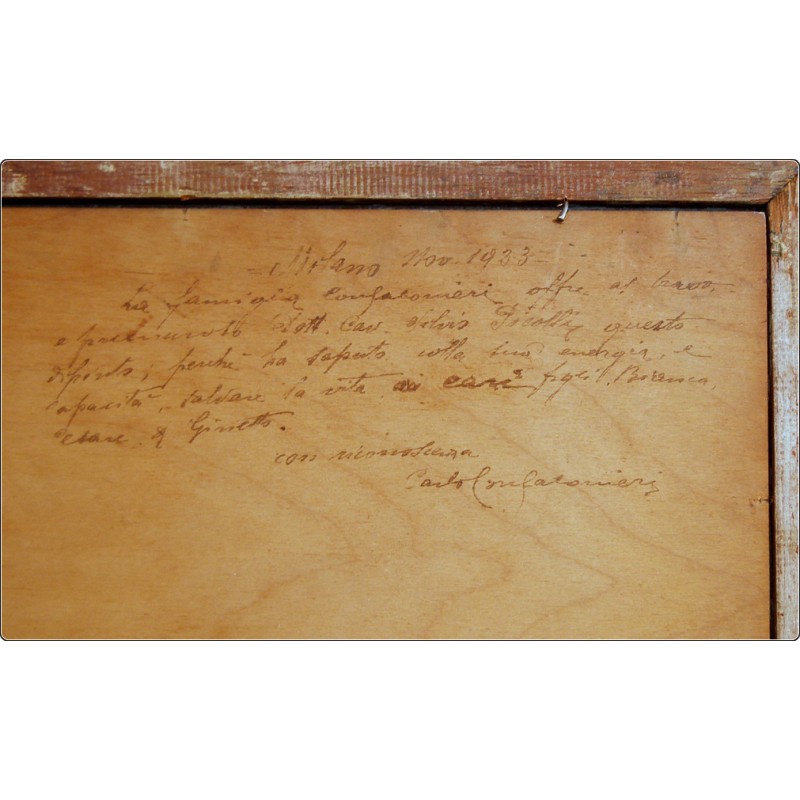 - Milano Nov. 1933 -
La famiglia Confalonieri offre al bravo,
e premuroso Dott. Cav. Silvio questo
dipinto, perchè ha saputo colla sua energia, e
capacità, salvare la vita ai cari figli Bianca,
Cesare e Ginetto.
con riconoscenza
Carlo Confalonieri